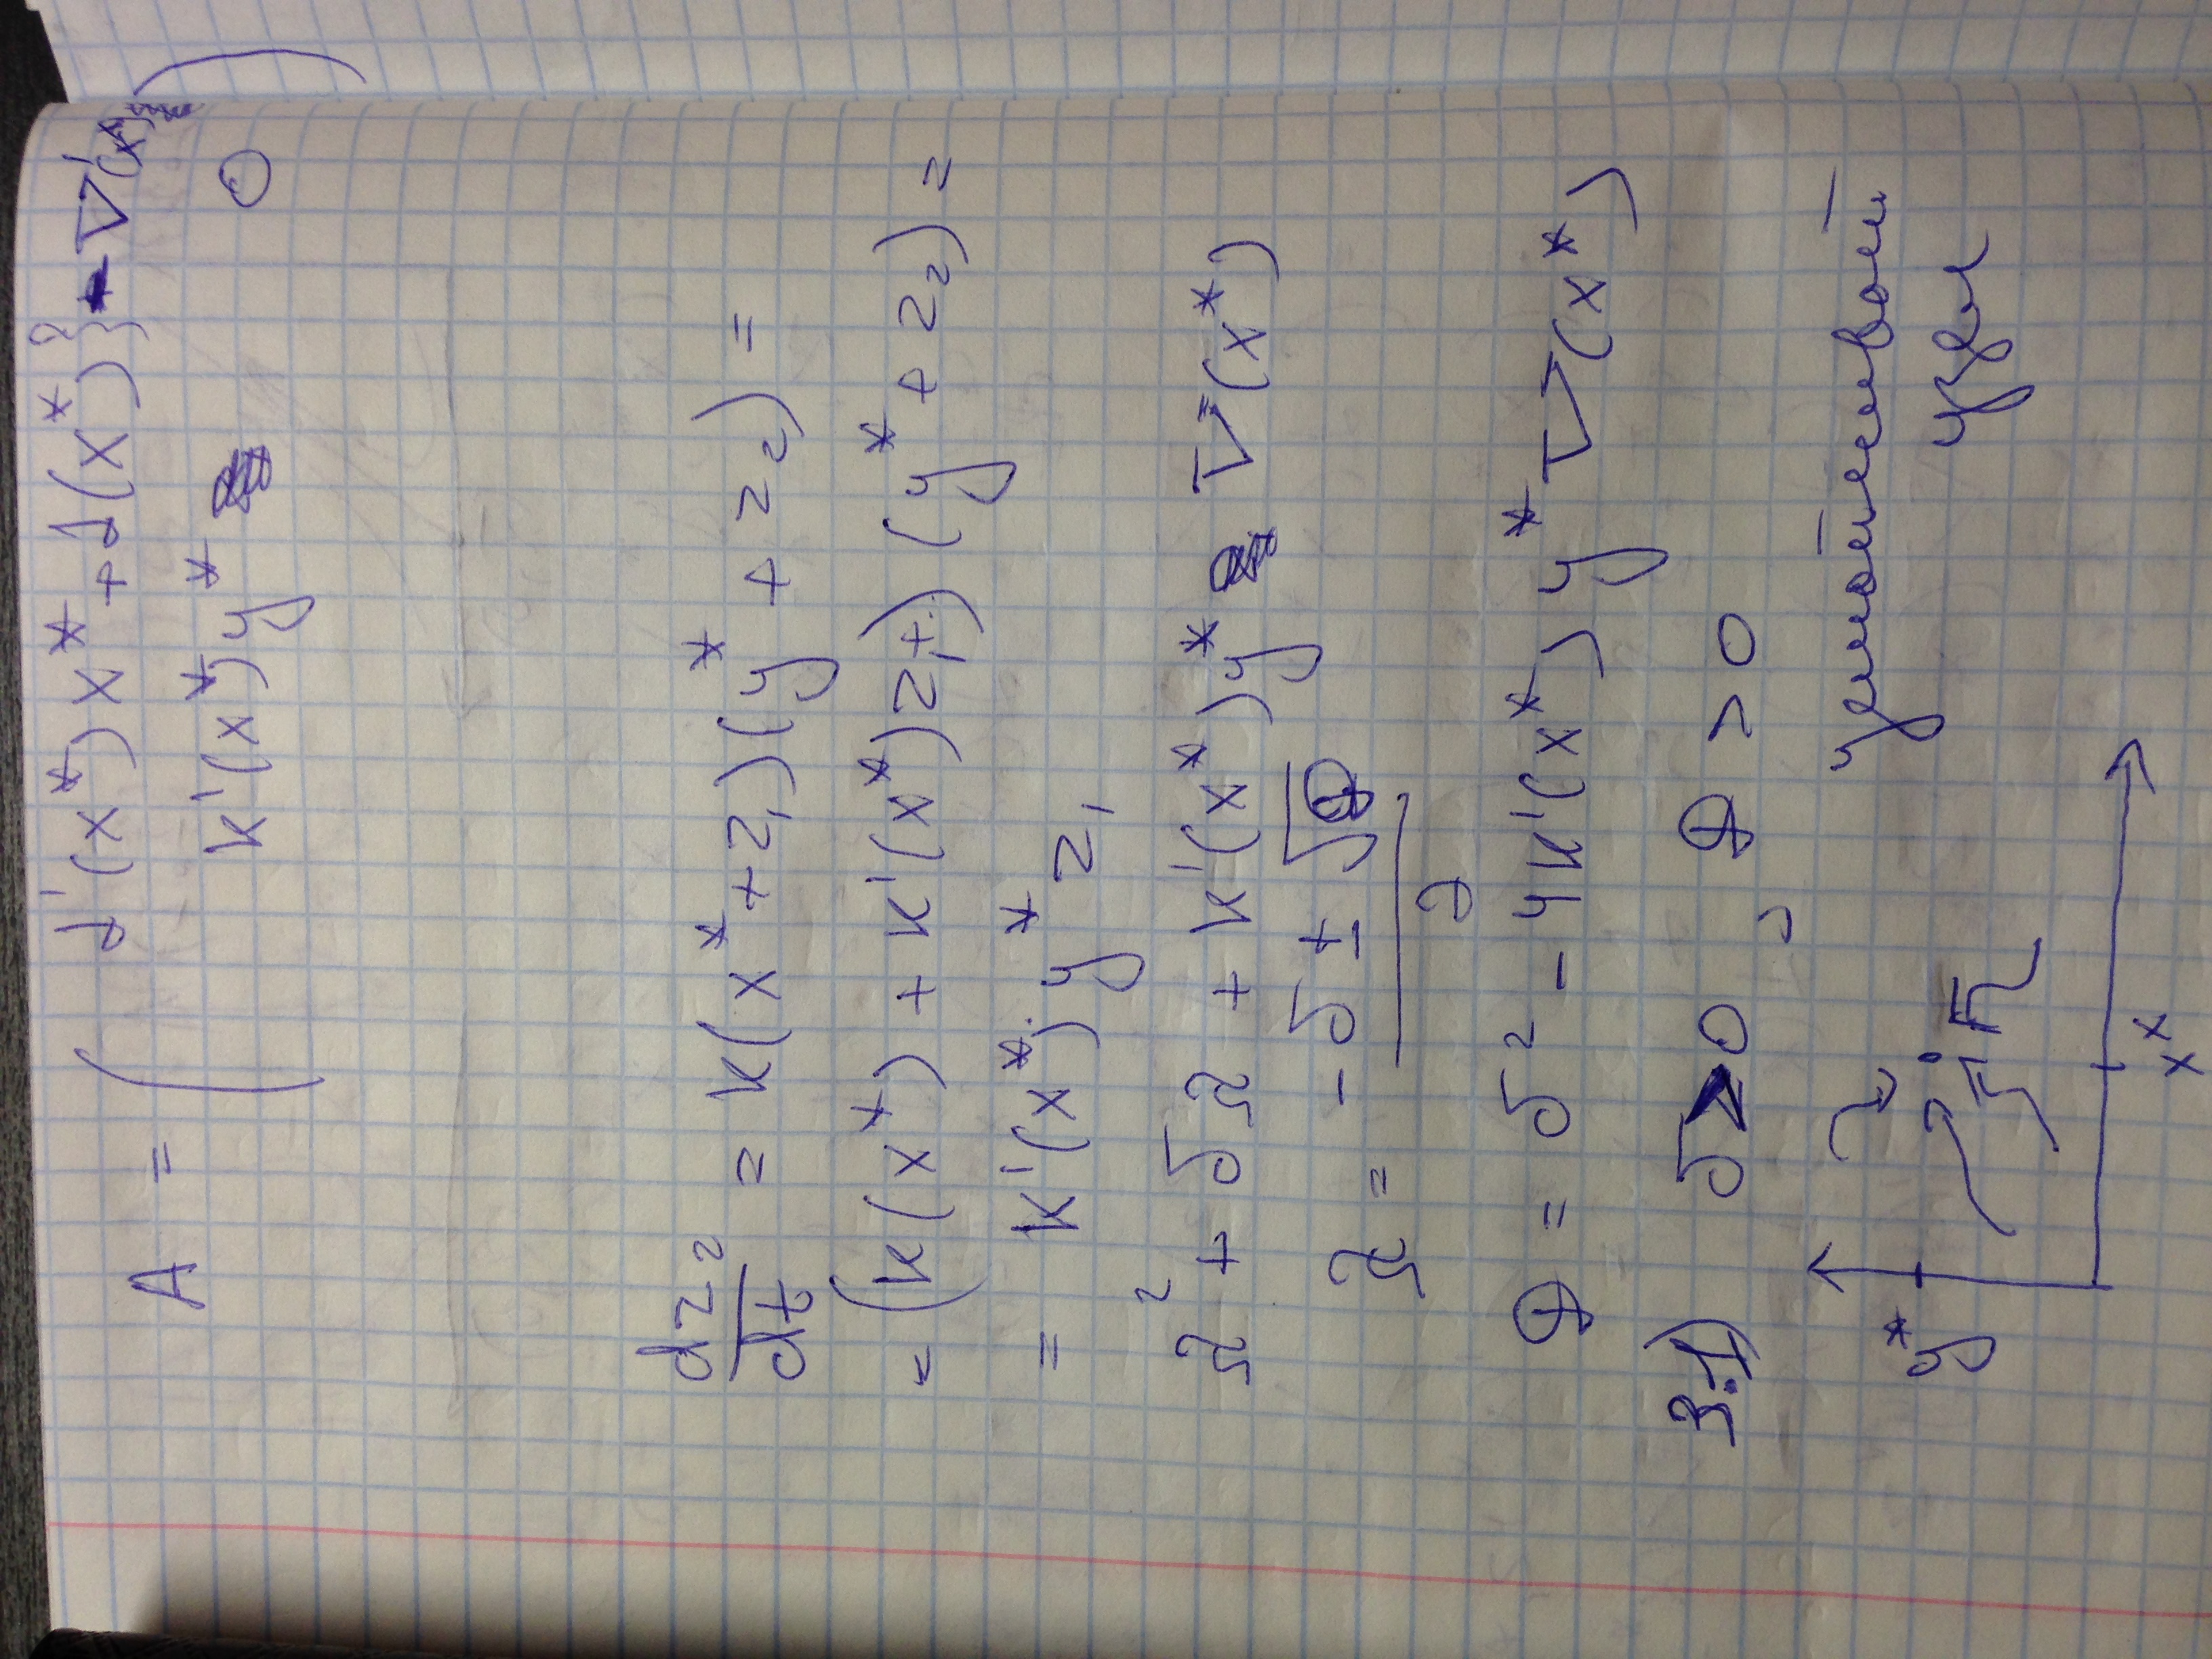 A = ( α'(x*)x* + α(x*)} - V'(x*)
k'(x*)y* 0 )
dz₂/dt = k(x* + z₁)(y* + z₂) =
= (k(x*) + k'(x*)z₁+)(y* + z₂) =
= k'(x*)·y* z₁
λ² + σλ + k'(x*)y* V(x*)
λ = (-σ ± √D)/2
D = σ² - 4k'(x*)y* V(x*)
3.1) σ > 0 , D > 0
y* устойчивый
узел
x*